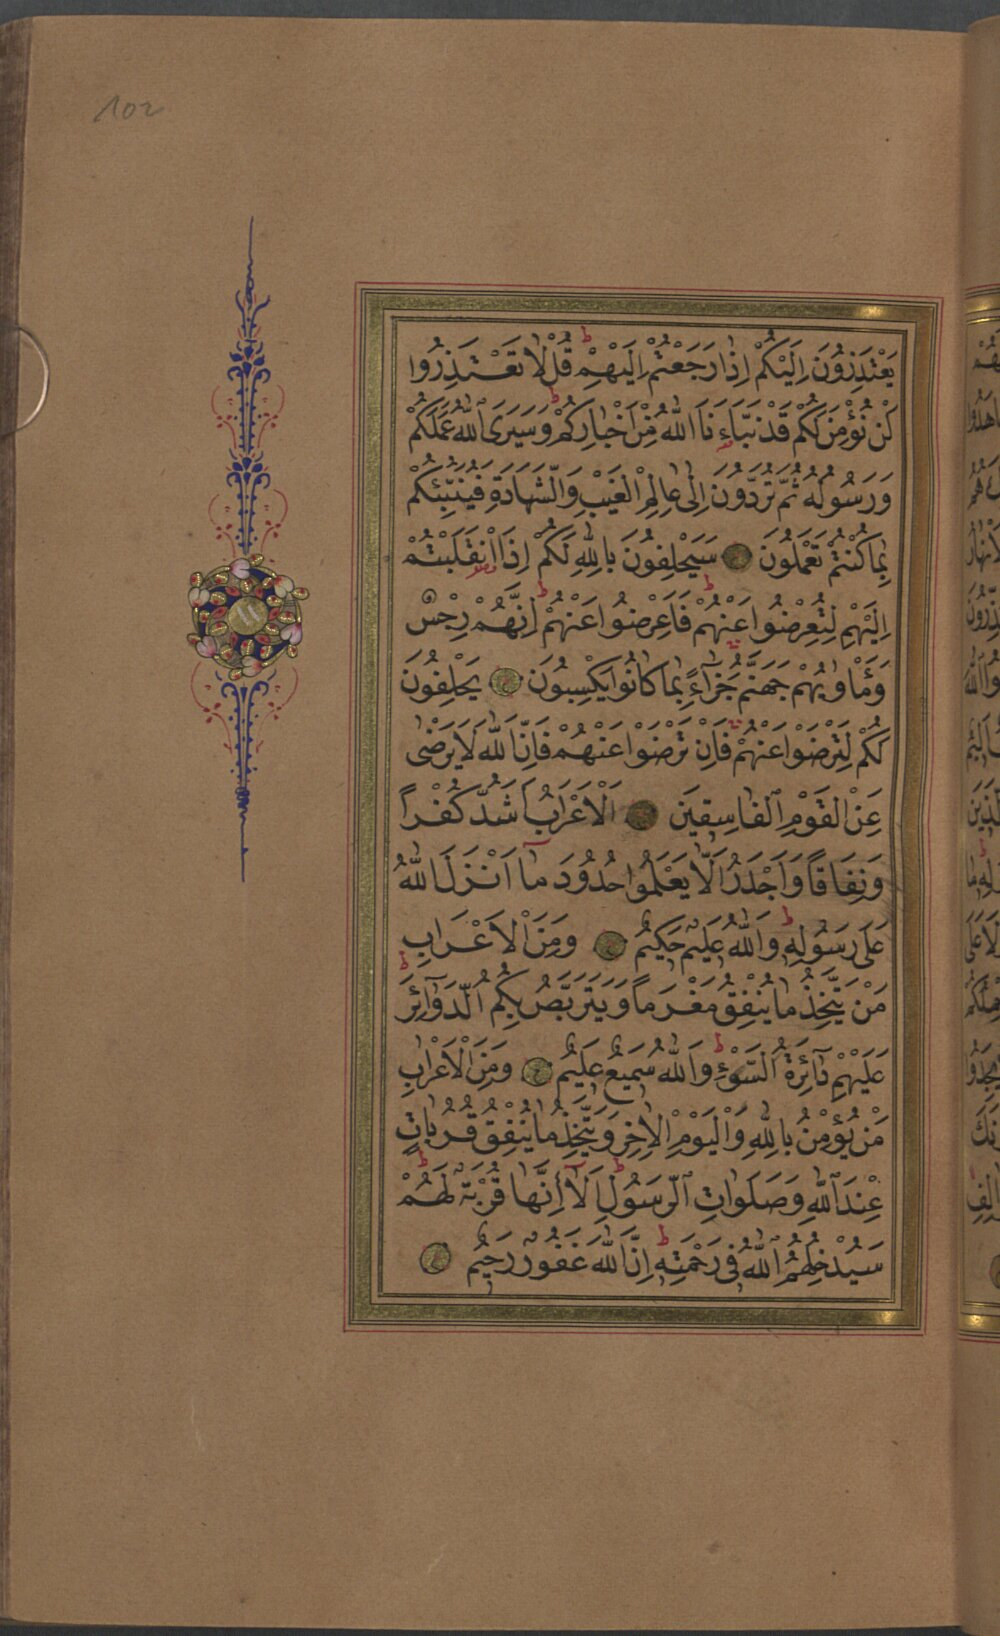 102
يَعْتَذِرُونَ اِلَيْكُمْ اِذَا رَجَعْتُمْ اِلَيْهِمْ ط قُلْ لَا تَعْتَذِرُوا
لَنْ نُؤْمِنَ لَكُمْ قَدْ نَبَّاَءنَا اللّٰهُ مِنْ اَخْبَارِكُمْ ط وَسَيَرَى اللّٰهُ عَمَلَكُمْ
وَرَسُولُهُ ثُمَّ تُرَدُّونَ اِلٰى عَالِمِ الْغَيْبِ وَالشَّهَادَةِ فَيُنَبِّئُكُمْ
بِمَا كُنْتُمْ تَعْمَلُونَ سَيَحْلِفُونَ بِاللّٰهِ لَكُمْ اِذَا انْقَلَبْتُمْ
اِلَيْهِمْ لِتُعْرِضُوا عَنْهُمْ ط فَاَعْرِضُوا عَنْهُمْ ط اِنَّهُمْ رِجْسٌ
وَمَاْوٰيهُمْ جَهَنَّمُ جَزَآءً بِمَا كَانُوا يَكْسِبُونَ يَحْلِفُونَ
لَكُمْ لِتَرْضَوْا عَنْهُمْ فَاِنْ تَرْضَوْا عَنْهُمْ فَاِنَّ اللّٰهَ لَا يَرْضٰى
عَنِ الْقَوْمِ الْفَاسِقِينَ اَلْاَعْرَابُ اَشَدُّ كُفْرًا
وَنِفَاقًا وَاَجْدَرُ اَلَّا يَعْلَمُوا حُدُودَ مَآ اَنْزَلَ اللّٰهُ
عَلٰى رَسُولِهِ ط وَاللّٰهُ عَلِيمٌ حَكِيمٌ وَمِنَ الْاَعْرَابِ
مَنْ يَتَّخِذُ مَا يُنْفِقُ مَغْرَمًا وَيَتَرَبَّصُ بِكُمُ الدَّوَآئِرَ ط
عَلَيْهِمْ دَآئِرَةُ السَّوْءِ ط وَاللّٰهُ سَمِيعٌ عَلِيمٌ وَمِنَ الْاَعْرَابِ
مَنْ يُؤْمِنُ بِاللّٰهِ وَالْيَوْمِ الْاٰخِرِ وَيَتَّخِذُ مَا يُنْفِقُ قُرُبَاتٍ
عِنْدَ اللّٰهِ وَصَلَوَاتِ الرَّسُولِ ط اَلَآ اِنَّهَا قُرْبَةٌ لَهُمْ ط
سَيُدْخِلُهُمُ اللّٰهُ فِى رَحْمَتِهِ ط اِنَّ اللّٰهَ غَفُورٌ رَحِيمٌ